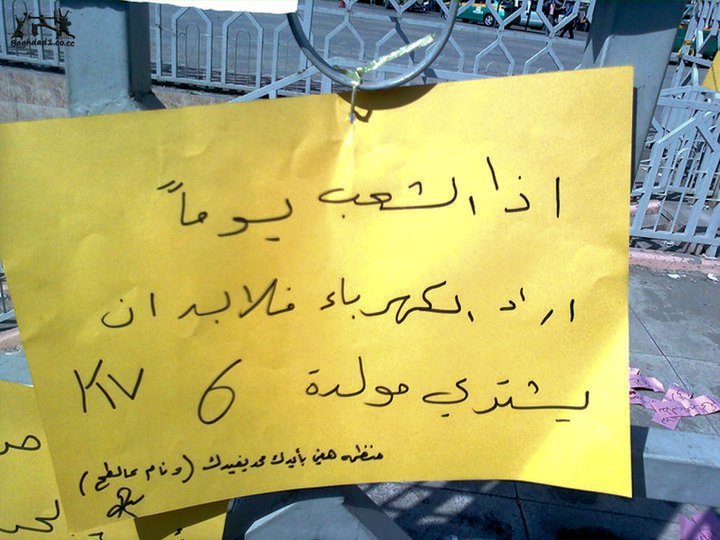 Baghdad2.co.cc
اذا الشعب يوماً
اراد الكهرباء فلابد ان
يشتري مولدة 6 KV
منظمه هني بأيدك محد يفيدك (ونام عالطح)